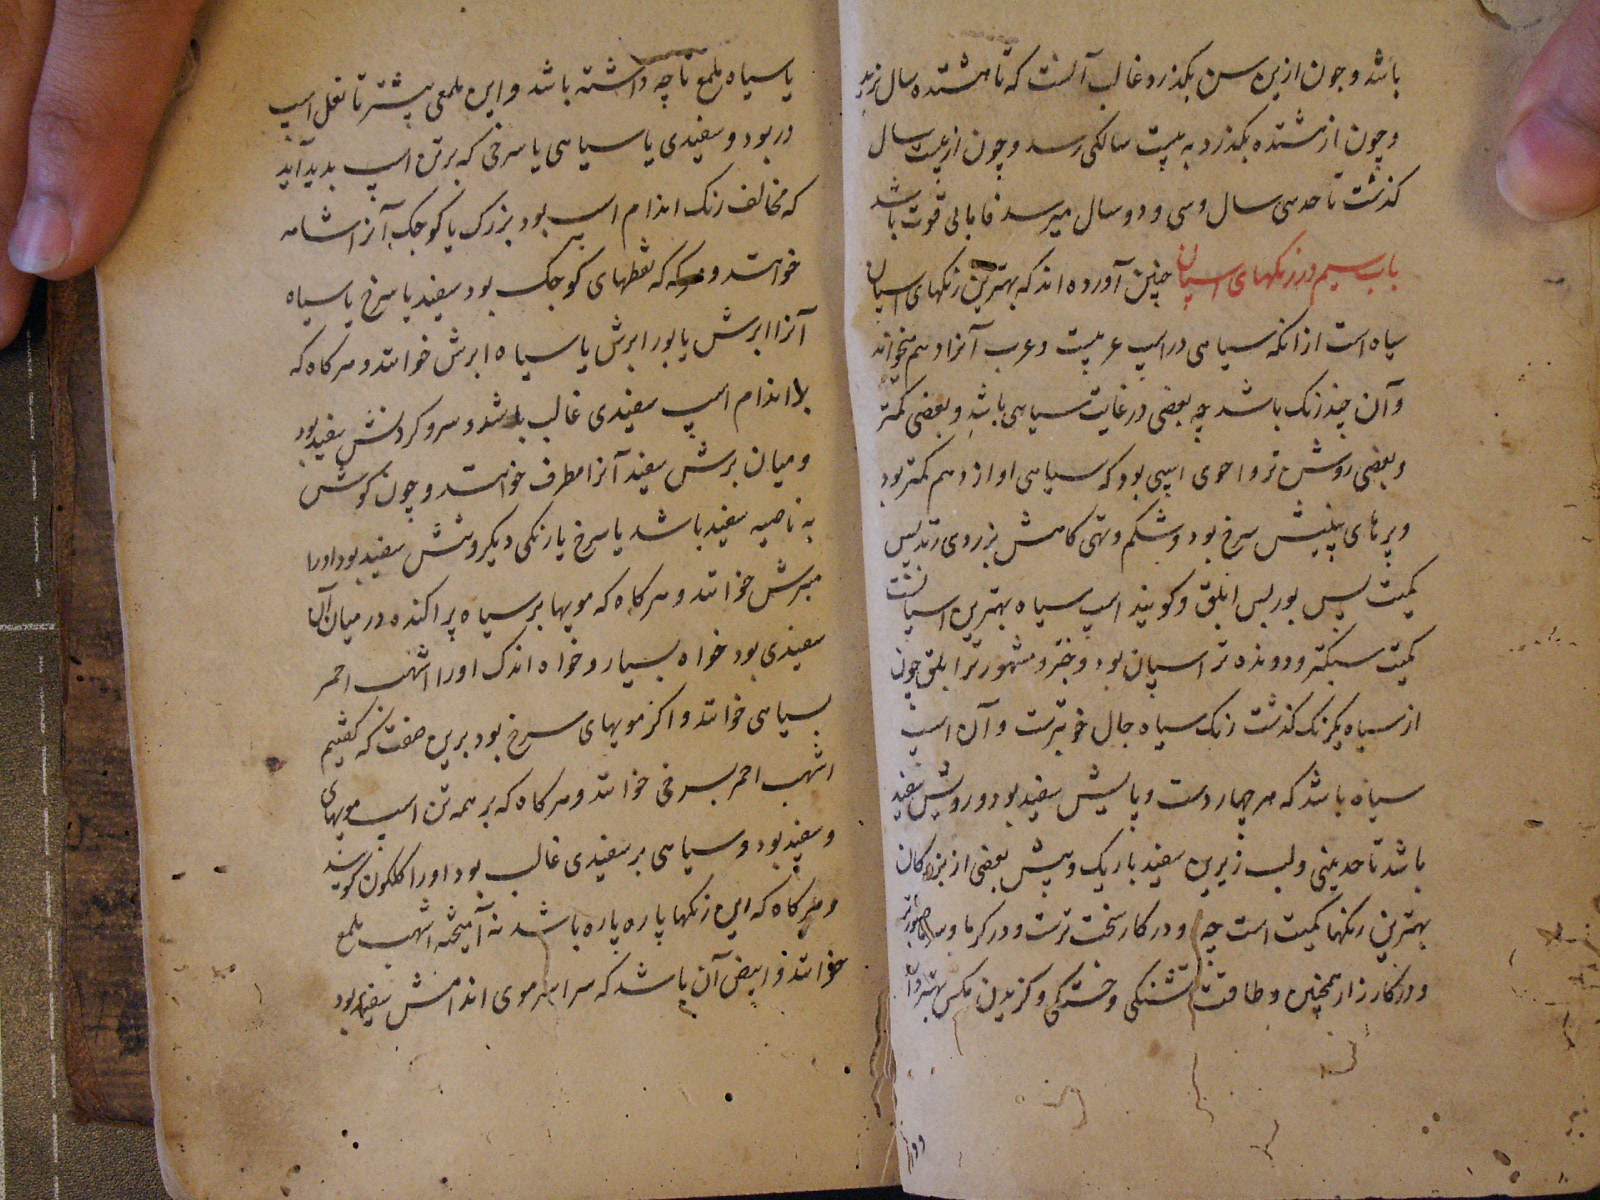 باشد و چون ازین سن بکذرد غالب آنست که تا هشتده سال زید
و چون از هشتده بکذرد به بیست سالکی رسد و چون از بیست سال
کذشت تا حد سی سال و سی و دو سال میرسد فاما بی قوت باشد
باب سیم در رنکهای اسپان چنین آورده اند که بهترین رنکهای اسپان
سیاه است از انکه سیاهی در اسپ عربیست و عرب آنرا ادهم میخواند
و آن چند رنک باشد چه بعضی در غایت سیاهی باشد و بعضی کمتر
و بعضی روشن تر و احوی اسپی بود که سیاهی او از ادهم کمتر بود
و پرهای بینیش سرخ بود و شکم و تهی کاهش بزردی زند پس
کمیت پس بور پس ابلق و کویند اسپ سیاه بهترین اسپانست
کمیت سبکتر و دونده تر اسپان بود و مشهورتر ابلق چون
از سیاه یکرنک کذشت رنک سیاه جال خوبترست و آن اسپ
سیاه باشد که هر چهار دست و پایش سفید بود و رویش سفید
باشد تا حد بینی و لب زیرین سفید باریک و پیش بعضی از بزرکان
بهترین رنکها کمیت است چه او در کار سخت ترست و در کرما و سرما صبورتر
و در کارزار همچنین و طاقت تشنکی و خستکی و کزیدن مکس بهتر دارد
ودر
یا سیاه ملمع تا چه داشته باشد و این ملمعی بیشتر تا نعل اسپ
در بود و سفیدی یا سیاهی یا سرخی که بر تن اسپ بدید آید
که مخالف رنک اندام اسپ بود بزرک یا کوجک آنرا شامه
خوانند و که نقطهای کوجک بود سفید یا سرخ یا سیاه
آنرا ابرش یا بور ابرش یا سیاه ابرش خوانند و هر کاه که
بر اندام اسپ سفیدی غالب باشد و سر و کردنش سفید بود
و میان برش سفید آنرا مطرف خوانند و چون کوش
به ناصیه سفید باشد یا سرخ یا رنکی دیکر و تنش سفید بود او را
مبرش خوانند و هر کاه که مویها بر سیاه پراکنده در میان آن
سفیدی بود خواه بسیار و خواه اندک او را اشهب احمر
بسیاهی خوانند و اکر مویهای سرخ بود برین صفت که کفتیم
اشهب احمر بسرخی خوانند و هر کاه که بر همه تن اسپ مویهای
سفید بود و سیاهی بر سفیدی غالب بود او را کلکون کویند
و هر کاه که این رنکها پاره پاره باشد نه آمیخته اشهب ملمع
خوانند و ابیض آن باشد که سراسر موی اندامش سفید بود